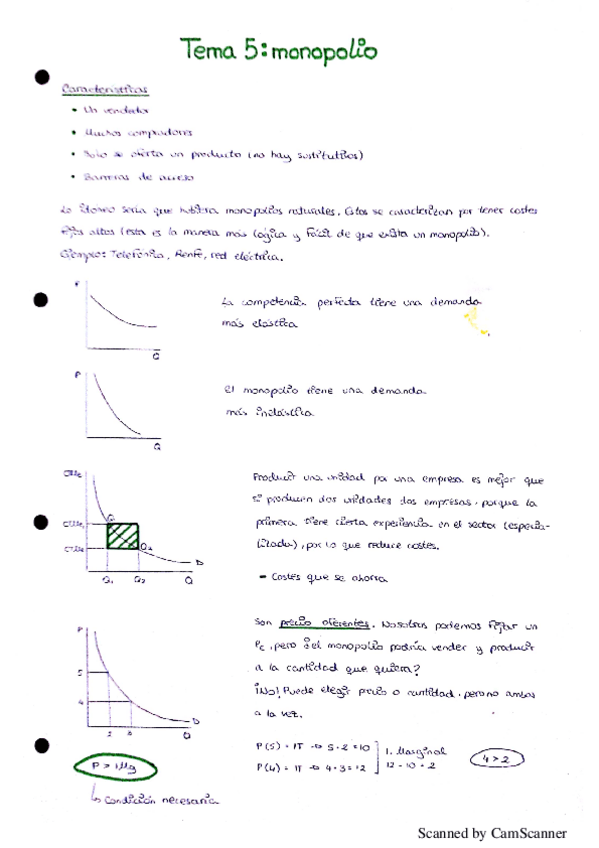 Tema 5: monopolio
Características
• Un vendedor
• Muchos compradores
• Solo se oferta un producto (no hay sustitutivos)
• Barreras de acceso
Lo idóneo sería que hubiera monopolios naturales. Estos se caracterizan por tener costes
fijos altos (esta es la manera más lógica y fácil de que exista un monopolio).
Ejemplo: Telefónica, Renfe, red eléctrica.
P
Q
La competencia perfecta tiene una demanda
más elástica
P
Q
El monopolio tiene una demanda
más inelástica
Q₁ Q₂ Q
D
Producir una unidad por una empresa es mejor que
si producen dos unidades dos empresas, porque la
primera tiene cierta experiencia en el sector (especia-
lizada), por lo que reduce costes.
- Costes que se ahorra
P
5
4
2 3 Q
D
Son precio oferentes. Nosotros podemos fijar un
Pc, pero ¿el monopolio podría vender y producir
a la cantidad que quiera?
¡No! Puede elegir precio o cantidad, pero no ambos
a la vez.
P(5) = IT → 5·2=10
P(4) = IT → 4·3=12
I. Marginal
12 - 10 = 2
4>2
P > IMg
↳ Condición necesaria
Scanned by CamScanner